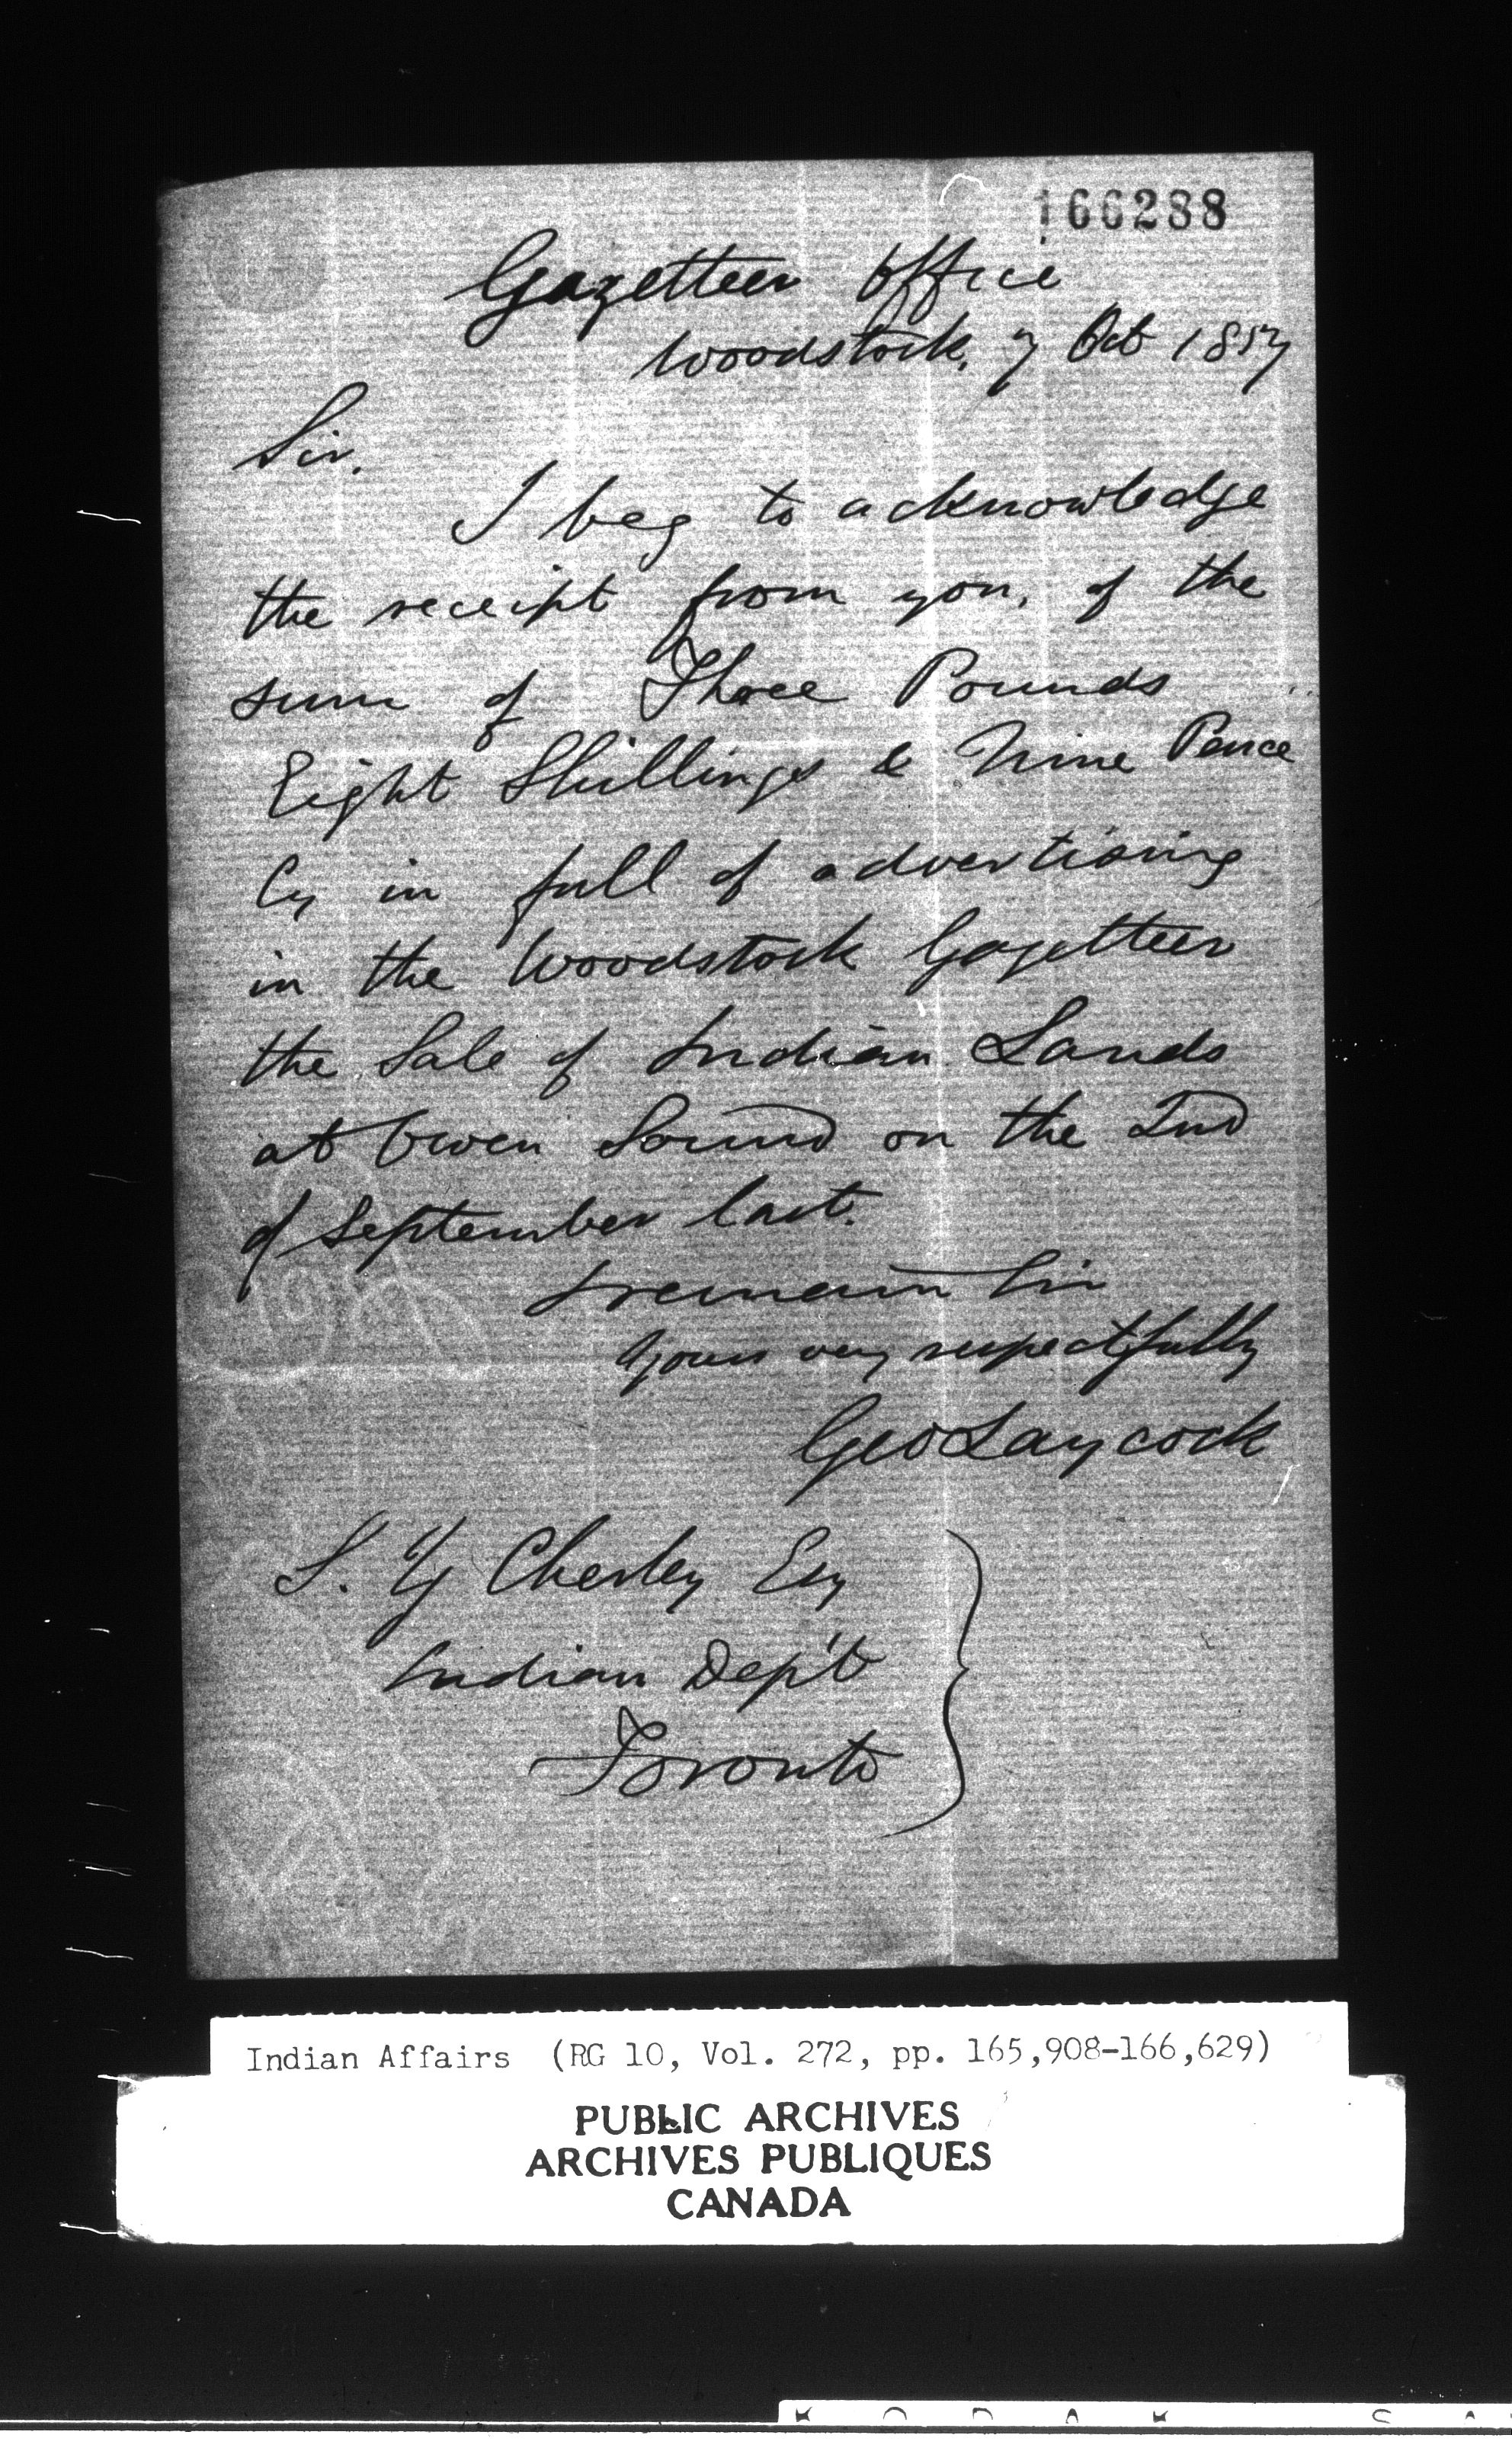 166288
Gazetteer Office
Woodstock, 7 Oct 1857
Sir.
I beg to acknowledge
the receipt from you, of the
sum of Three Pounds
Eight Shillings & Nine Pence
Cy in full of advertising
in the Woodstock Gazetteer
the Sale of Indian Lands
at Owen Sound on the 2nd
of September last.
I remain Sir
Yours very respectfully
Geo Laycock
S. Y Chesley Esq
Indian Dep't
Toronto
Indian Affairs (RG 10, Vol. 272, pp. 165,908-166,629)
PUBLIC ARCHIVES
ARCHIVES PUBLIQUES
CANADA